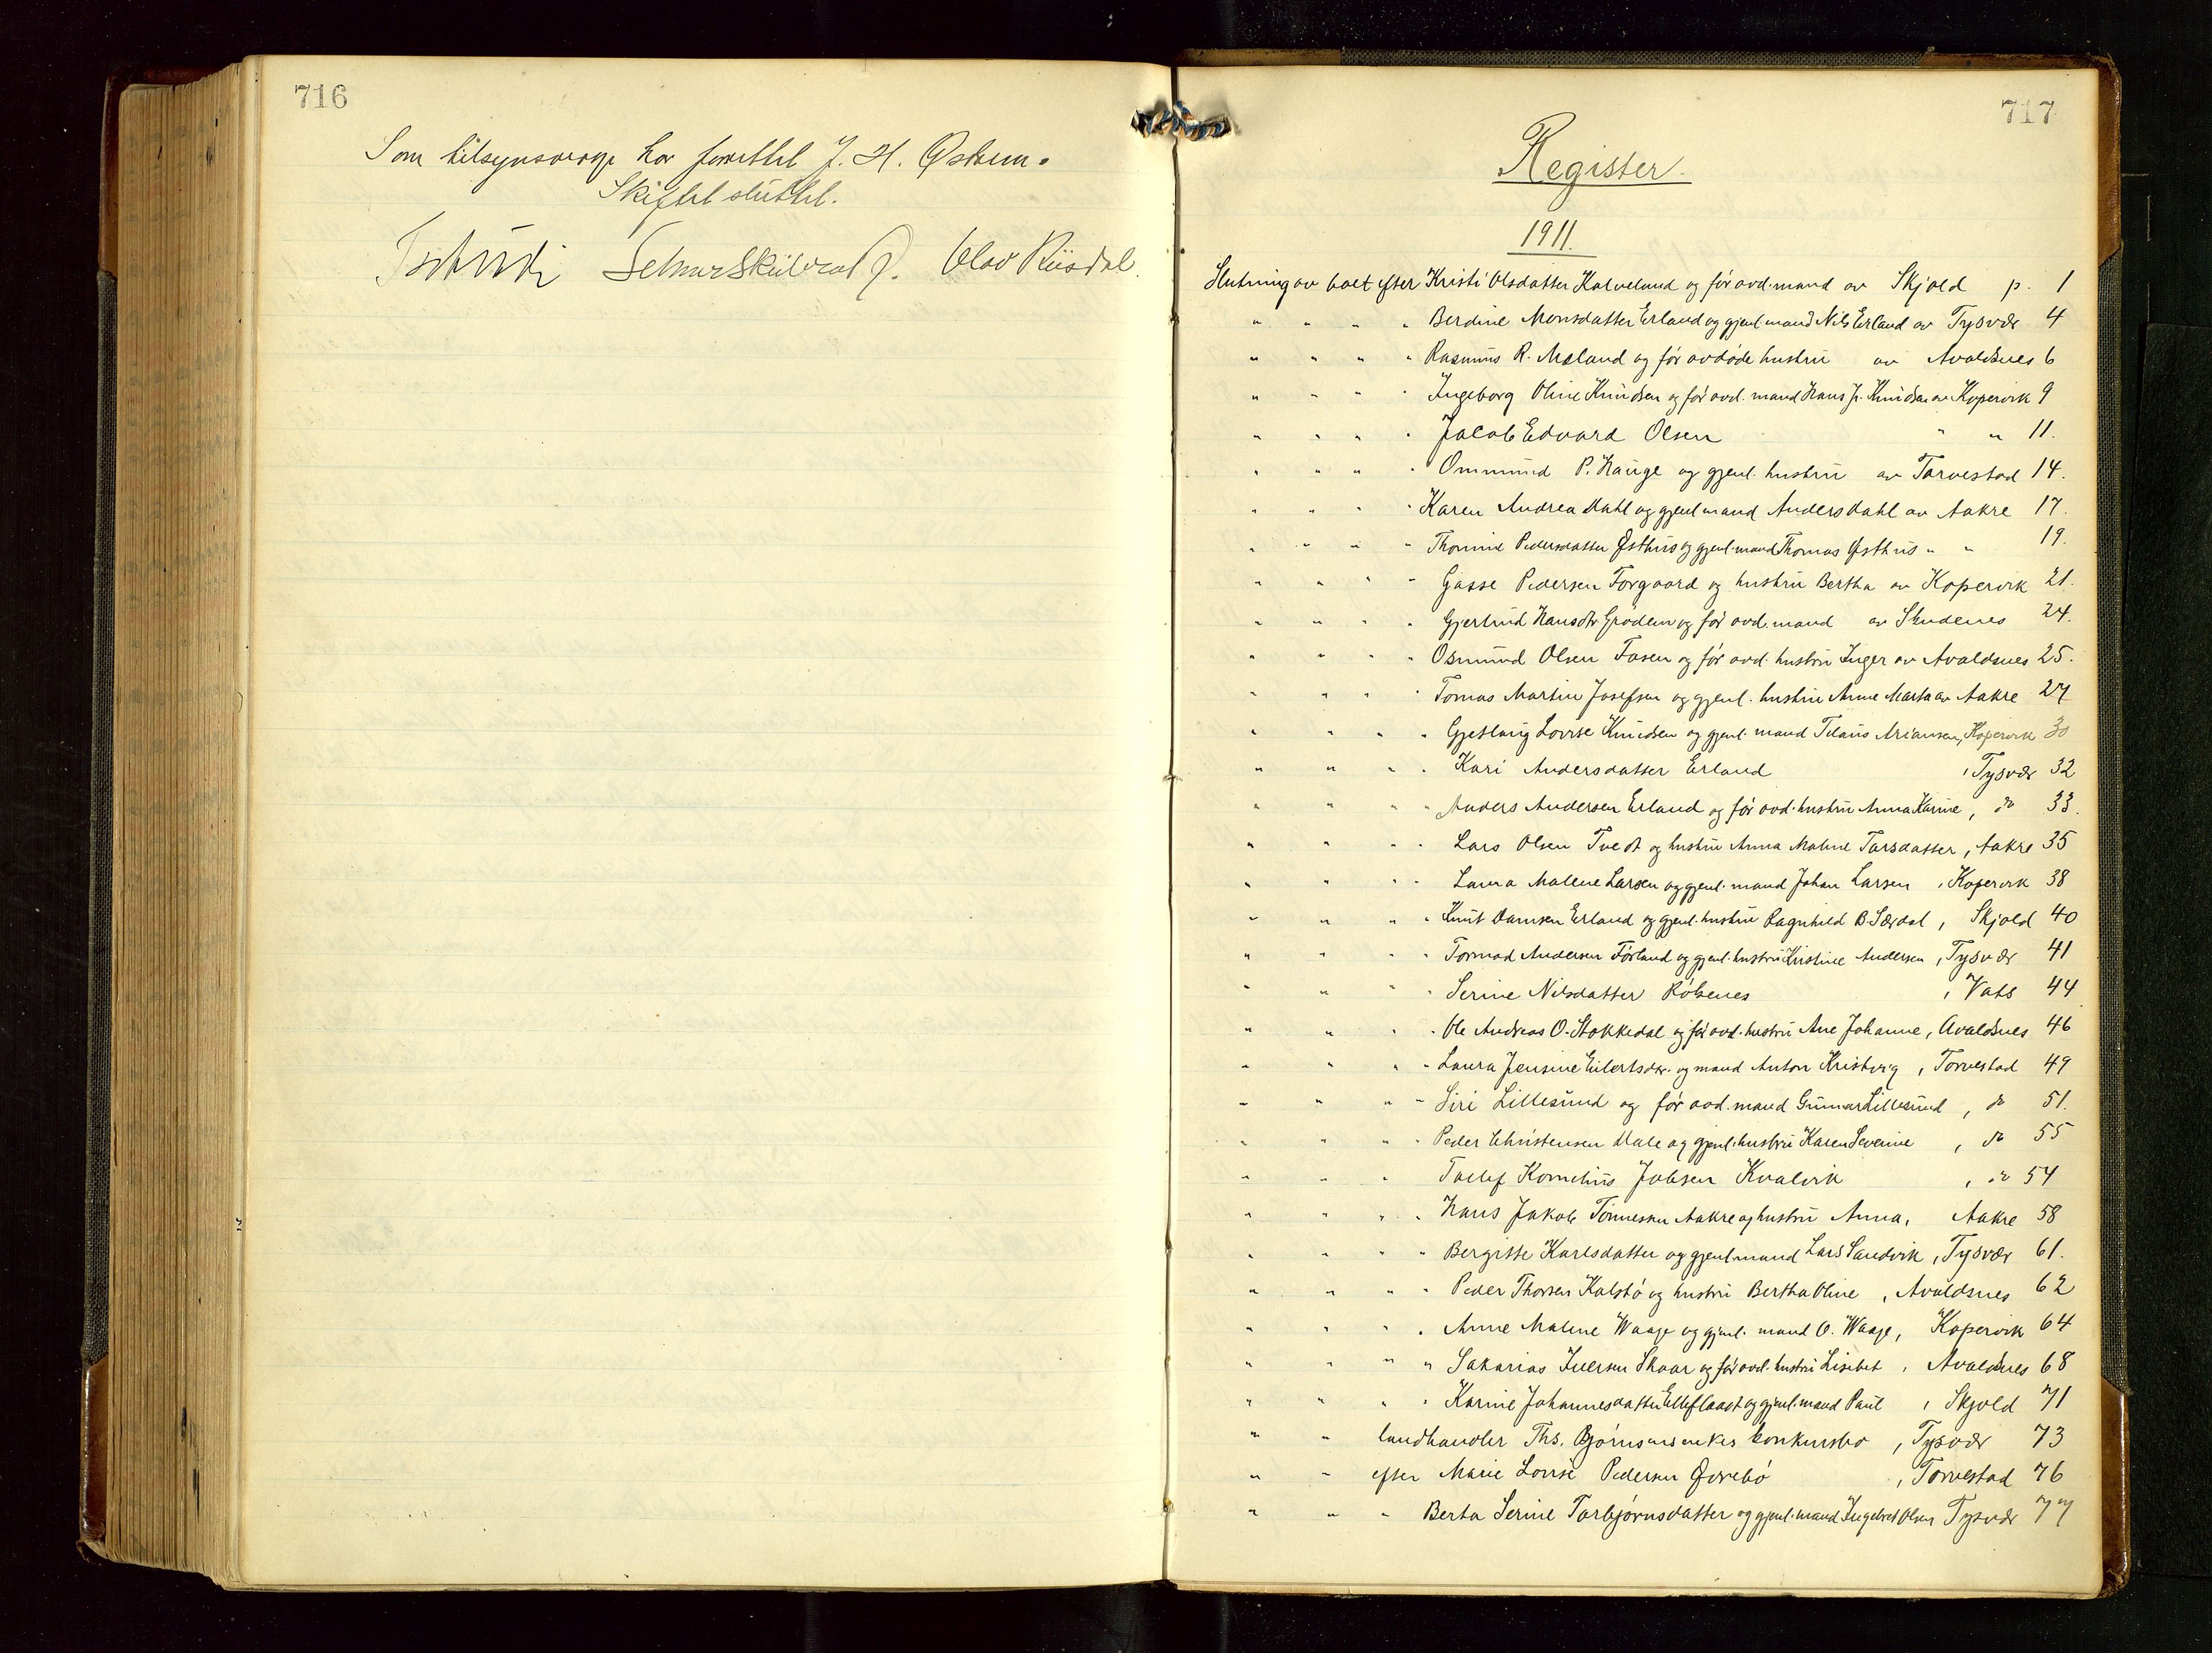 716
Som tilsynsverge har forrettet J. H. Østrem.
Skiftet sluttet.
Olav Riisdal.
717
Register.
1911.
Slutning av boet efter Kristi Olsdatter Kalveland og før avd. mand av Skjold p. 1
" " " " Berdine Monsdatter Erland og gjenl. mand Nils Erland av Tysvær 4
" " " " Rasmus R. Mæland og før avdøde hustru av Avaldsnes 6
" " " " Ingeborg Oline Knudsen og før avd. mand Hans Jr. Knudsen av Kopervik 9
" " " " Jacob Edvard Olsen " " 11.
" " " " Ommund P. Hauge og gjenl. hustru av Torvestad 14.
" " " " Karen Andrea Dahl og gjenl mand Anders Dahl av Aakre 17.
" " " " Thomine Pedersdatter Østhus og gjenl. mand Thomas Østhus " " 19.
" " " " Gasse Pedersen Forgaard og hustru Bertha av Kopervik 21.
" " " " Gjertrud Hansdtr Grødem og før avd. mand av Skudenes 24.
" " " " Osmund Olsen Fosen og før avd. hustru Inger av Avaldsnes 25.
" " " " Tomas Martin Josefsen og gjenl. hustru Anne Marta av Aakre 27
" " " " Gjetlaug Lovise Knudsen og gjenl. mand Ariansen, Kopervik 30
" " " " Kari Andersdatter Erland , Tysvær 32
" " " " Anders Andersen Erland og før avd. hustru Anna Karine, do 33.
" " " " Lars Olsen Tvedt og hustru Anna Malene Tarsdatter, Aakre 35
" " " " Laura Malene Larsen og gjenl. mand Johan Larsen , Kopervik 38
" " " " Knut Erland og gjenl. hustru Ragnhild B. Særdal, Skjold 40
" " " " Tormod Andersen Førland og gjenl. hustru Kristine Andersen , Tysvær 41
" " " " Serine Nilsdatter Rølsenes , Vats 44
" " " " Ole Andreas O. Stokkedal og før avd. hustru Ane Johanne, Avaldsnes 46
" " " " Laura Jensine Eilertsdtr. og mand Anton Kristvig , Torvestad 49
" " " " Siri Lillesund og før avd. mand Gunnar Lillesund , do 51.
" " " " Peder Christensen Dale og gjenl. hustru Karen Severine , do 55
" " " Tollef Kornelius Jobsen Kvalvik , do 54
" " " " Hans Jakob Tønnesen Aakre og hustru Anna, Aakre 58
" " " " Bergitte Karlsdatter og gjenl. mand Lars Sandvik, Tysvær 61.
" " " " Peder Thorsen Kalstø og hustru Bertha Oline , Avaldsnes 62
" " " " Anne Malene Waage og gjenl. mand O. Waage, Kopervik 64
" " " " Sakarias Iversen Skaar og før avd. hustru Lisebet , Avaldsnes 68
" " " " Karine Johannesdatter Elleflaadt og gjenl. mand Paul , Skjold 71
" " landhandler Ths. Bjørnsens enkes konkursbo , Tysvær 73
" " efter Marie Lovise Pedersen Øvrebø , Torvestad 76
" " " Berta Serine Torbjørnsdatter og gjenl. mand Ingebret Olsen Tysvær 77